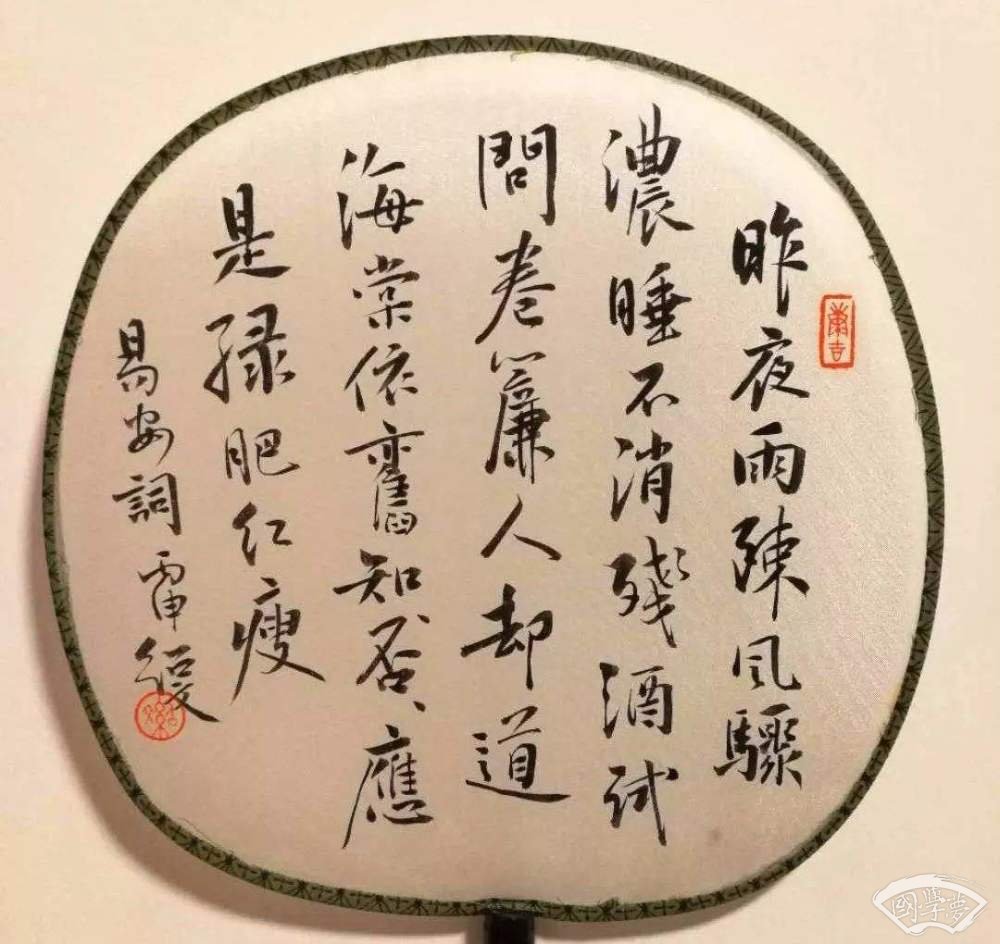 昨夜雨疎风驟
濃睡不消殘酒試
問卷簾人却道
海棠依舊知否、應
是緑肥红瘦
易安詞丙申
國學夢